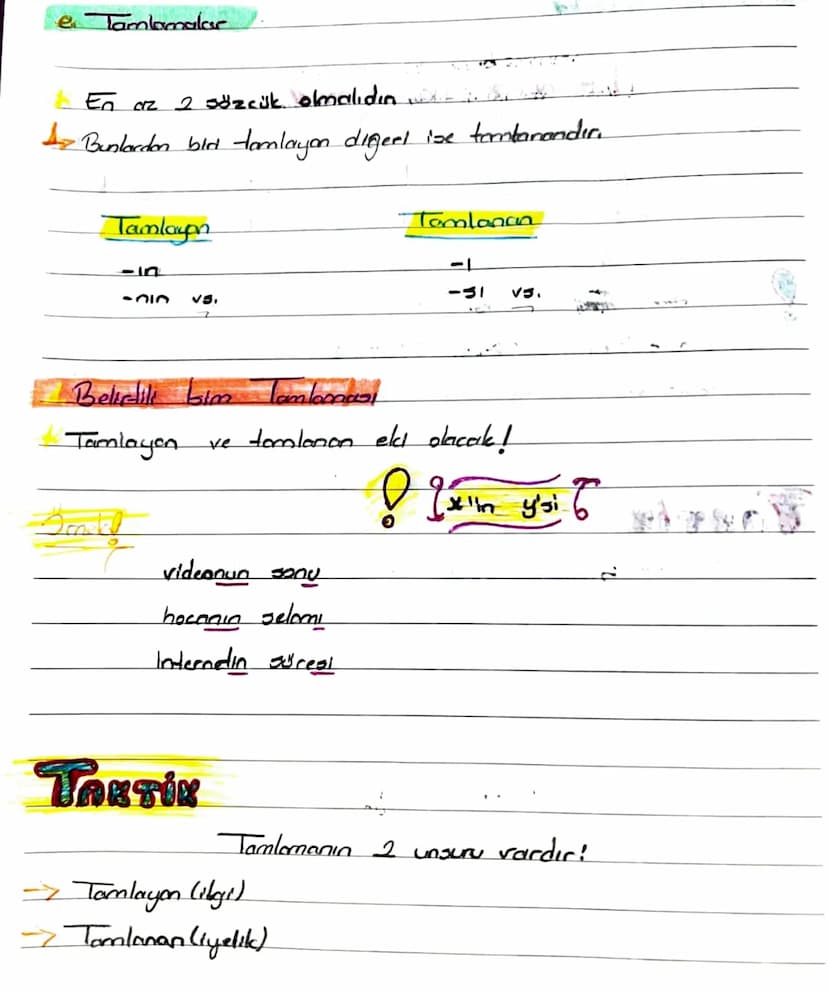 e. Tamlamalar
En az 2 sözcük olmalıdır.
Bunlardan biri tamlayan diğeri ise tamlanandır.
Tamlayan Tamlanan
-ın -ı
-nın vs. -sı vs.
Belirtili isim Tamlaması
Tamlayan ve tamlanan eki olacak!
! x'in y'si
Örnek
videonun sonu
hocanın selamı
İnternetin süresi
TAKTİK
Tamlamanın 2 unsuru vardır!
→ Tamlayan (ilgi)
→ Tamlanan (iyelik)